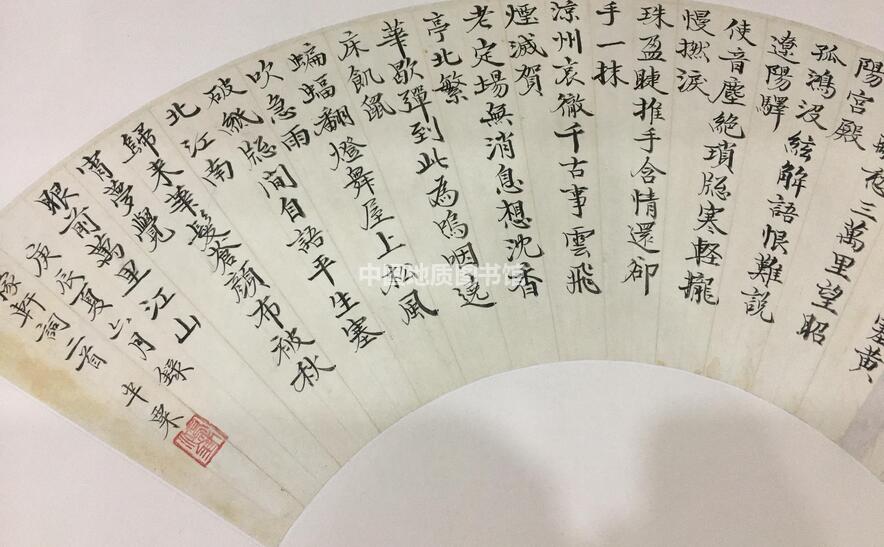 塞黃
愁三萬里望昭
陽宮殿
孤鴻沒絃解語恨難說
遼陽驛
使音塵絕瑣牕寒輕攏
慢撚淚
珠盈睫推手含情還卻
手一抹
涼州哀徹千古事雲飛
煙滅賀
老定場無消息想沈香
亭北繁
華歇彈到此為嗚咽遶
床飢鼠
蝙蝠翻燈舞屋上松風
吹急雨
破紙牕間自語平生塞
北江南
歸來華髮蒼顏布被秋
宵夢覺
眼前萬里江山
庚辰夏六月錄
稼軒詞二首 半梁
中国地质图书馆